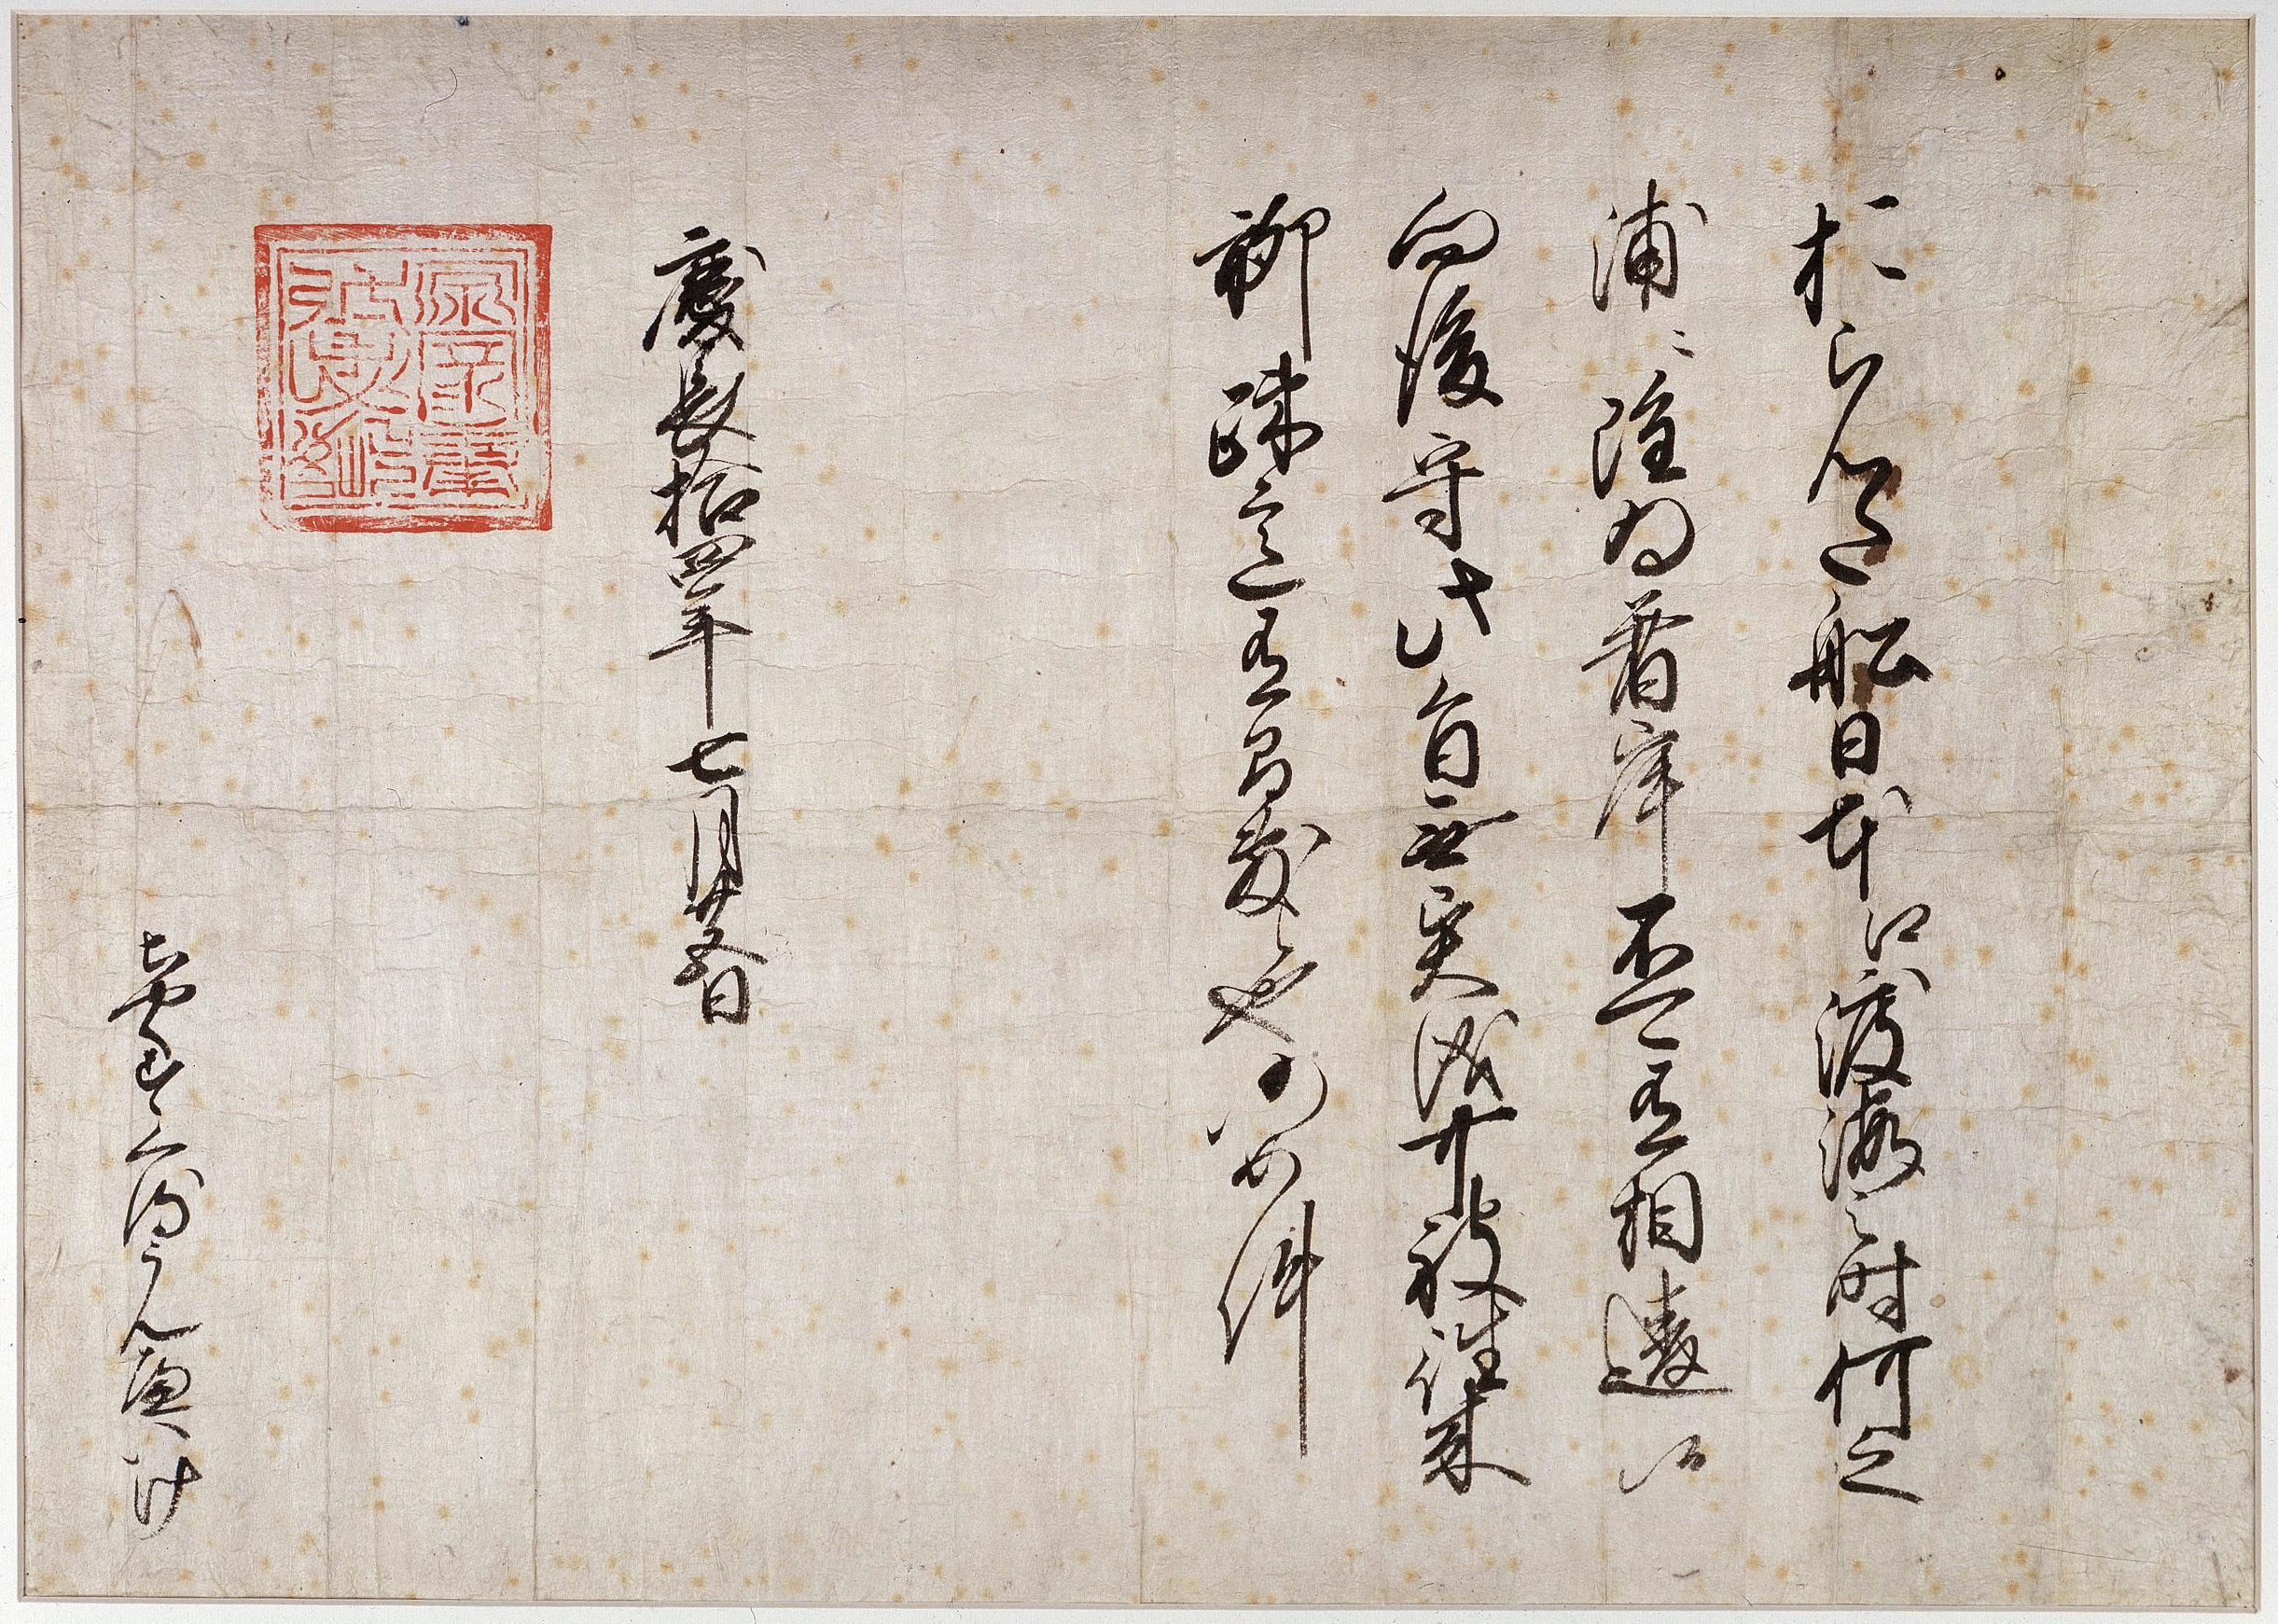 おらんだ船日本江渡海之時何之
浦々雖為着岸不可有相違候
向後守此旨無異儀可被往来
聊疎意有間敷也仍如件
慶長拾四年七月廿五日
ちやくすくるうんへいけ